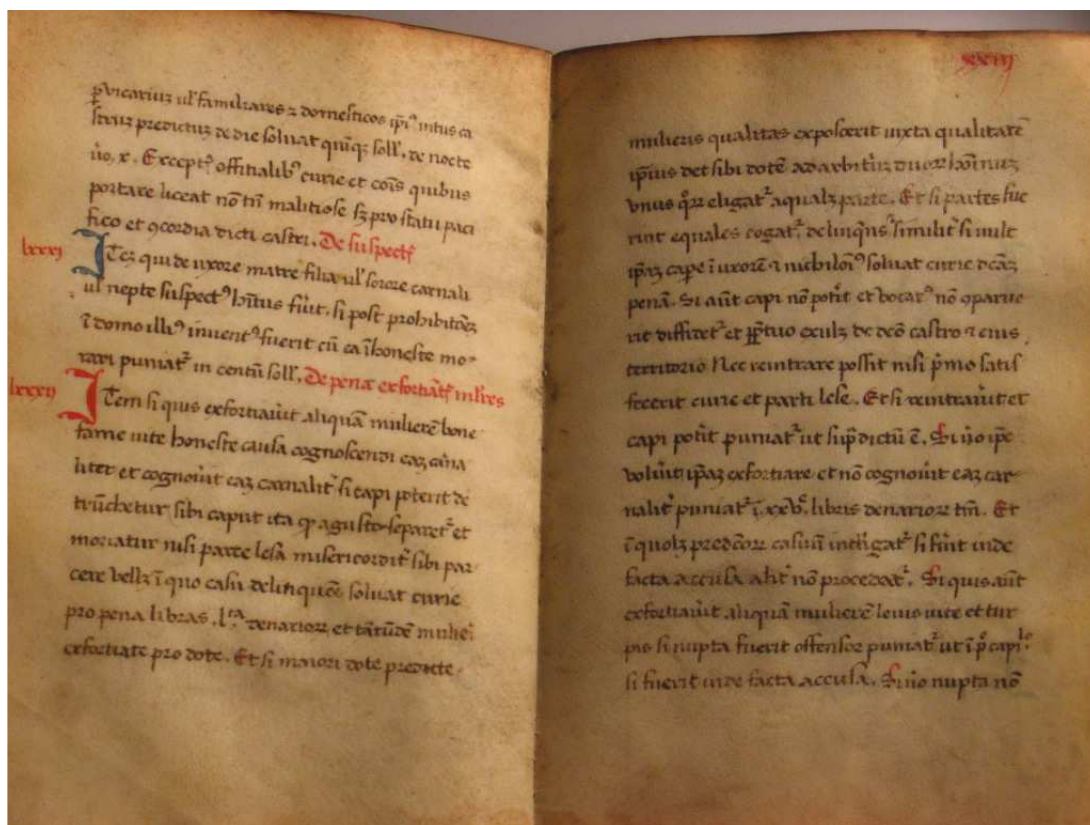 vicarius ul' familiares ⁊ domesticos ip̄i' intus ca
struȝ predictuȝ de die soluat quinqȝ soll'. de nocte
ůo. x. Except⁹ offitialib⁹ curie et cōis quibus
portare liceat nō tn̄ malitiose sȝ pro statu paci
fico et ꝯcordia dicti castri. De suspect
lxxxi
ITeȝ qui de uxore matre filia ul' sorore carnali
ul' nepte suspect⁹ hītus fu̇it. si post prohibitōeȝ
ī domo illi⁹ invent⁹ fuerit cū ea īhoneste mo
rari puniat᷑ in centū soll'. De pena exfortiāt ml'res
lxxxii
ITem si quis exfortiau̇it aliquā mulierē bone
fame uite honeste causa cognoscendi eaȝ carna
liter et cognou̇it eaȝ carnalit̄ si capi poterit de
trūchetur sibi caput ita ꝙ a gusto separet᷑ et
moriatur nisi parte lesa misericordit̄ sibi par
cere uellȝ ī quo casu delinquēs soluat curie
pro pena libras .lᵗᵃ. denarioꝝ et tātūdē mulie
exfortiate pro dote. Et si maiori dote predicte
xxiii
mulieris qualitas exposcerit iuxta qualitatē
ip̄ius det sibi dotē ad arbit̄uȝ duoꝝ hōinuȝ
unus qͦꝝ eligat᷑ a qualȝ parte. Et si partes fue
rint equales cogat᷑ delinqn̄s similit̄ si uult
ip̄aȝ cape ī uxorē ⁊ nichilōi⁹ soluat curie dc̄aȝ
penā. Si aūt capi nō pot̄it et vocat⁹ nō ꝯparue
rit diffidet᷑ et ꝑpetuo exulȝ de dc̄o castro ⁊ eius
territorio Nec reintrare possit nisi p̄mo satis
fecerit curie et parti lese. Et si reintrau̇it et
capi pot̄it puniat᷑ ut sup̄dictū ē. Si ůo ip̄e
uolu̇it ip̄aȝ exfortiare et nō cognou̇it eaȝ car
nalit̄ puniat᷑ ī .xxvᵒ. libris denarioꝝ tn̄. Et
ī quolȝ predc̄oꝝ casuū intl'igat᷑ si fu̇it inde
facta accusa alit̄ nō procedat᷑. Si quis aūt
exfortiau̇it aliquā mulierē leuis uite et tur
pis si nupta fuerit offensor puniat᷑ ut ī pͦ. capl'o.
si fuerit inde facta accusa. Si ůo nupta nō